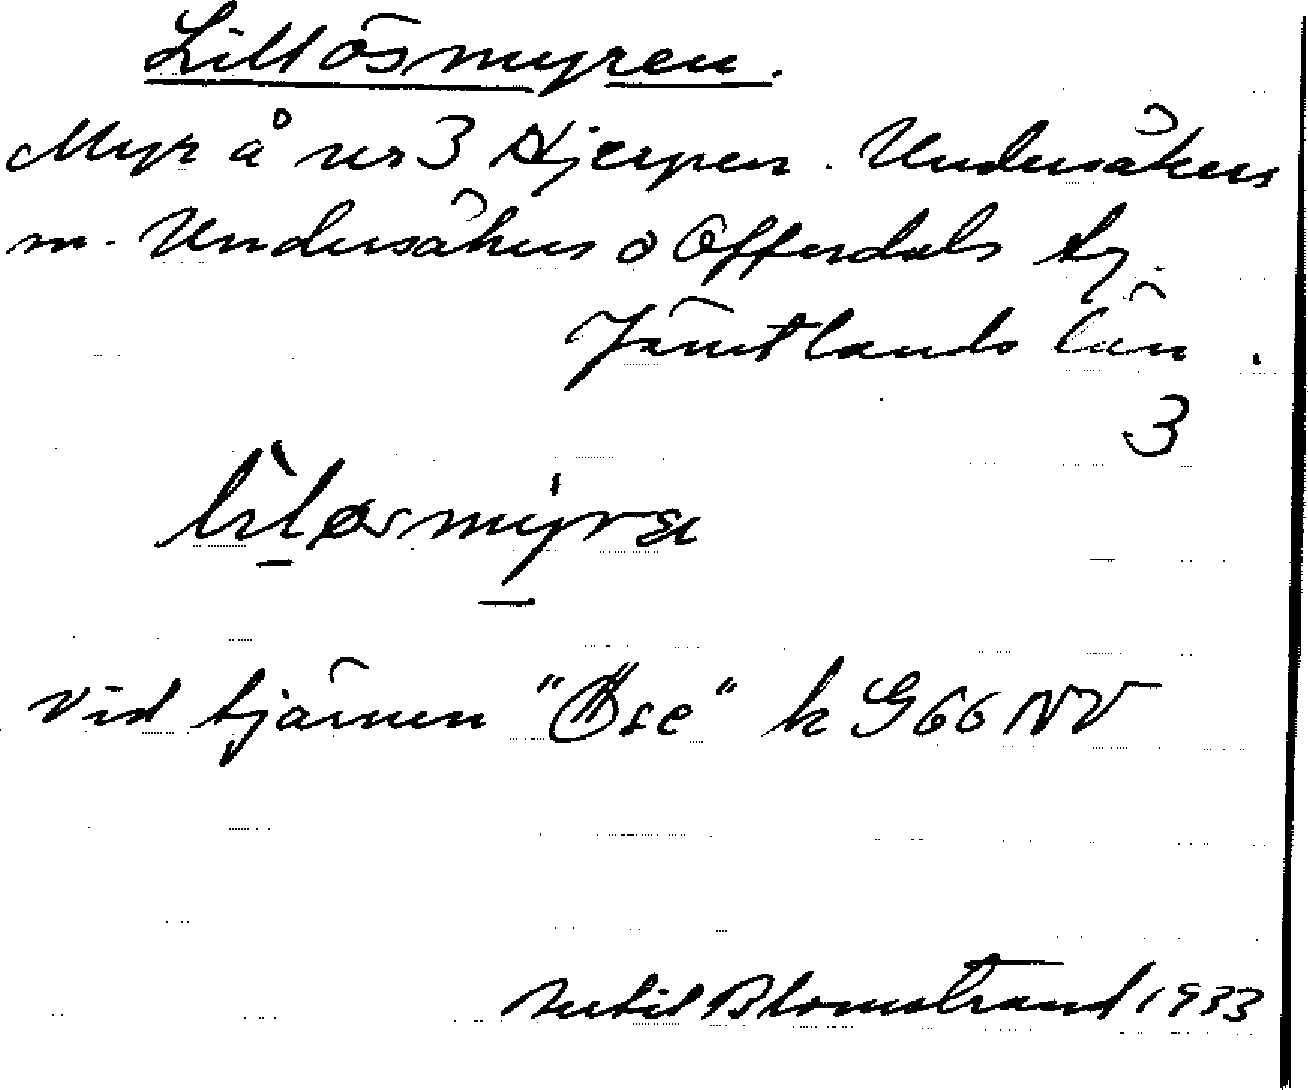 Lillösmyren.
Myr å nr 3 Hjerpen. Undersåkers
m. Undersåkers o Offerdals tg.
Jämtlands län.
3
vid tjärnen "Öse" k G66NV
Bertil Blomstrand 1933